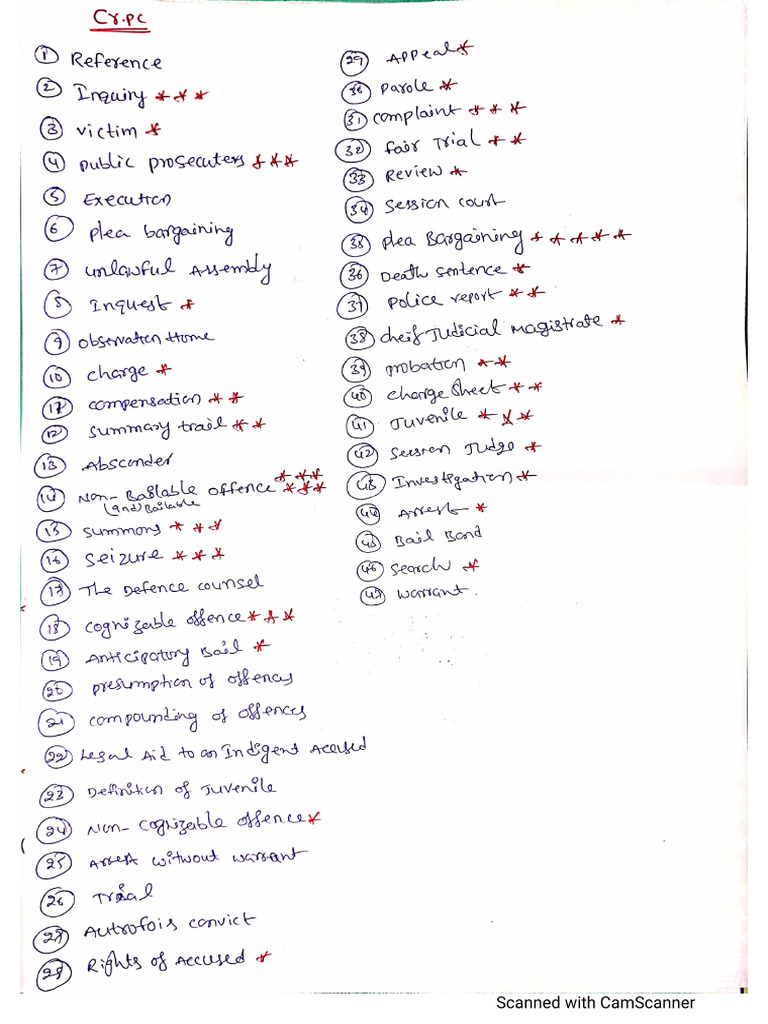 Cr.pc
1 Reference
2 Inquiry ***
3 victim *
4 public prosecuters ***
5 Execution
6 plea bargaining
7 unlawful Assembly
8 Inquest *
9 observation Home
10 charge *
11 compensation **
12 summary trail **
13 Absconder
14 Non-Bailable offence ******
(and) Bailable
15 summons ***
16 seizure ***
17 The Defence counsel
18 cognizable offence ***
19 Anticipatory Bail *
20 presumption of offences
21 compounding of offences
22 Legal Aid to an Indigent Accused
23 Definition of Juvenile
24 Non-cognizable offence *
25 Arrest without warrant
26 Trial
27 Autrofois convict
28 Rights of Accused *
29 Appeal *
30 parole *
31 complaint ***
32 fair Trial **
33 Review *
34 session court
35 plea Bargaining *****
36 Death sentence *
37 police report **
38 cheif Judicial magistrate *
39 probation **
40 charge sheet **
41 Juvenile ***
42 session Judge *
43 Investigation *
44 Arrest *
45 Bail Bond
46 search *
47 warrant.
Scanned with CamScanner